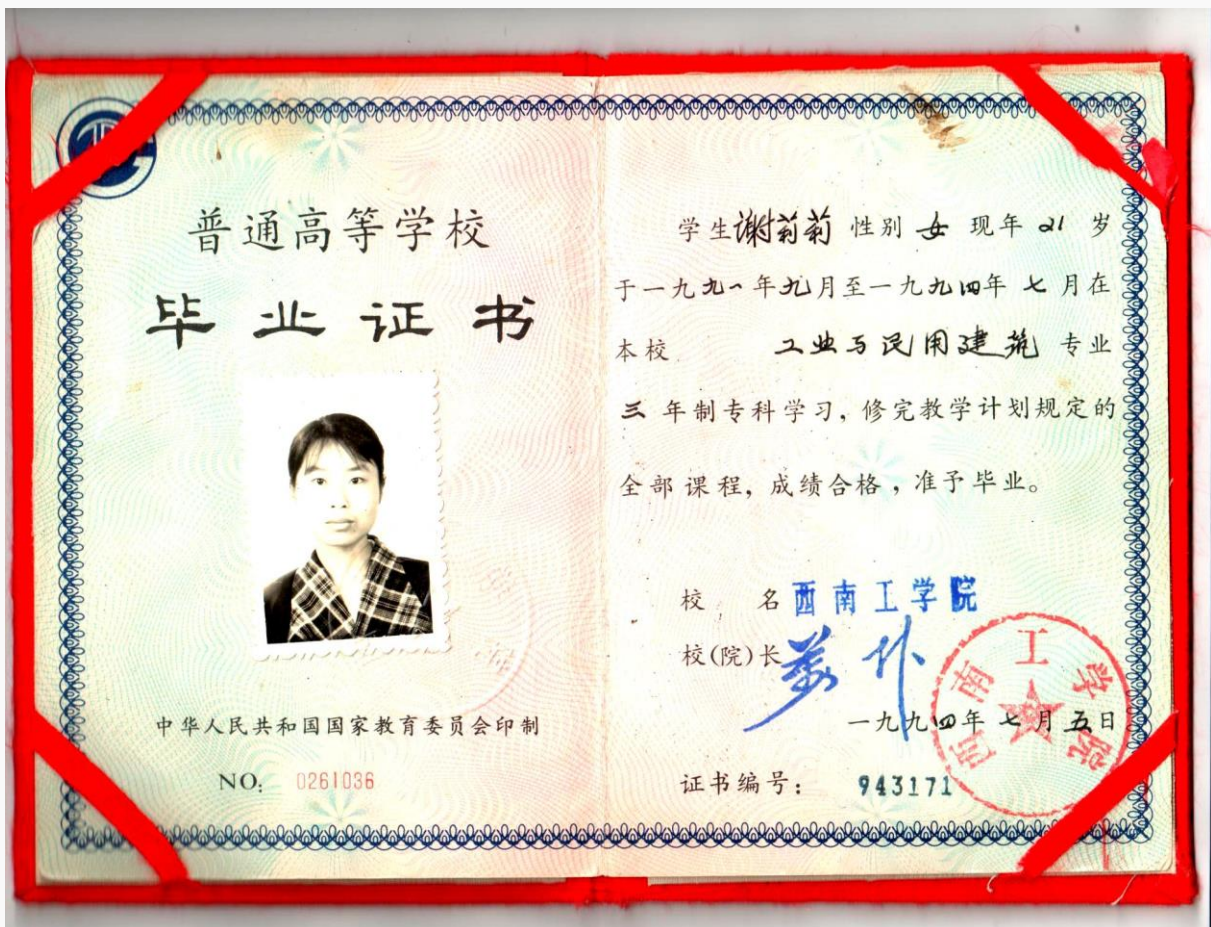 普通高等学校
毕业证书
中华人民共和国国家教育委员会印制
NO: 0261036
学生谢莉莉 性别 女 现年 21 岁
于一九九一年九月至一九九四年七月在
本校 工业与民用建筑 专业
三年制专科学习，修完教学计划规定的
全部课程，成绩合格，准予毕业。
校 名 西南工学院
校(院)长
一九九四年七月五日
西南工学院
证书编号： 943171